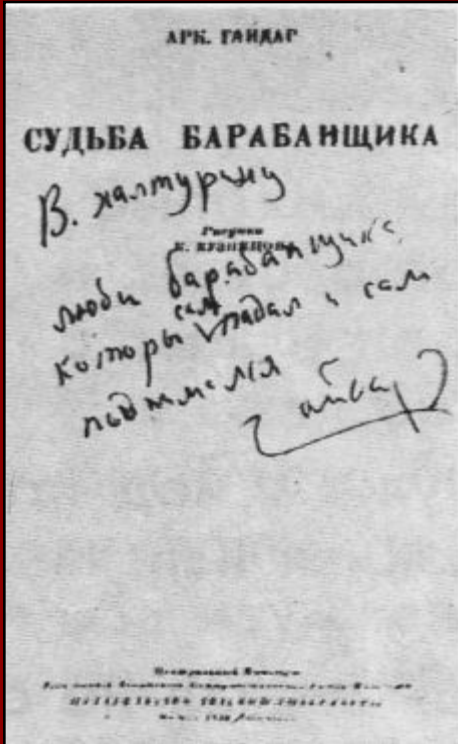 АРК. ГАЙДАР
СУДЬБА БАРАБАНЩИКА
В. Халтурину
Рисунки
К. КУЗНЕЦОВА
люби барабанщика
которы сам падал и сам
поднимался
Гайдар